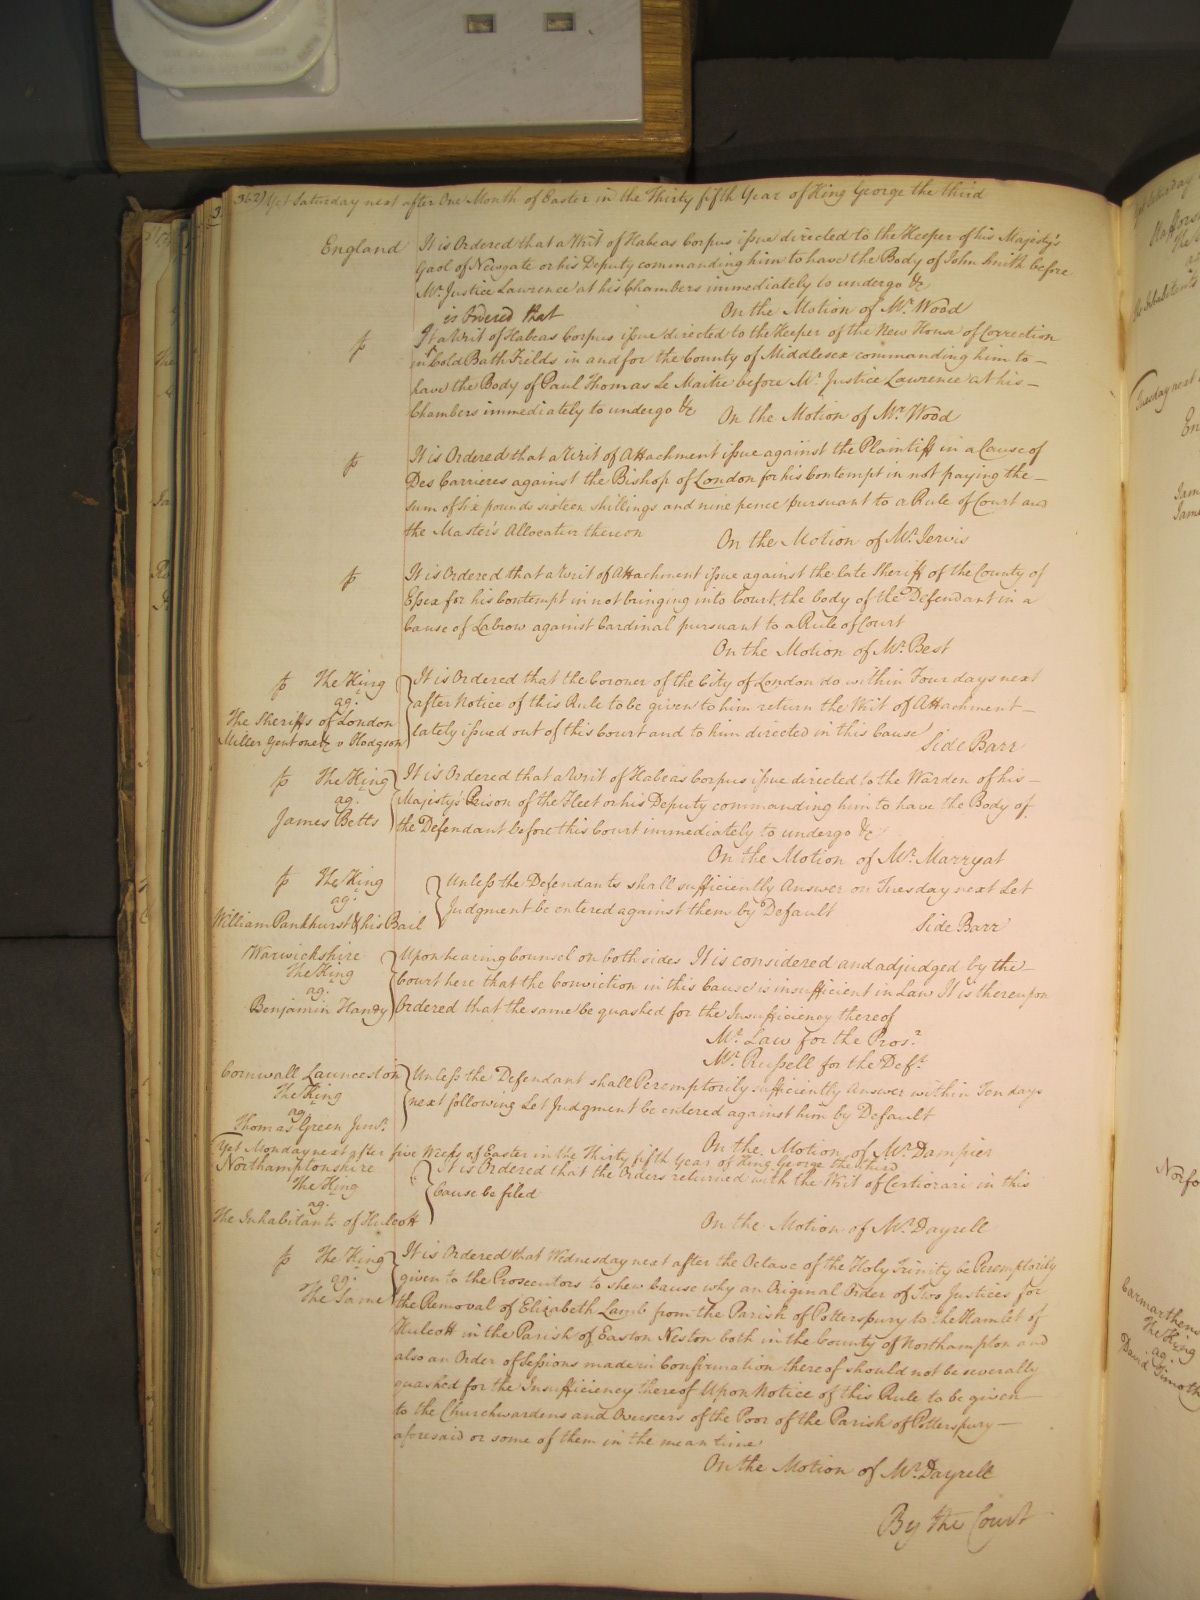 362) Yet Saturday next after One Month of Easter in the Thirty fifth Year of King George the third
England It is Ordered that a Writ of Habeas Corpus issue directed to the Keeper of his Majesty's
Gaol of Newgate or his Deputy commanding him to have the Body of John Smith before
Mr. Justice Lawrence at his Chambers immediately to undergo &c
On the Motion of Mr. Wood
is Ordered that
It a Writ of Habeas Corpus issue directed to the Keeper of the New House of Correction
in Cold Bath Fields in and for the County of Middlesex commanding him to
have the Body of Paul Thomas Le Maitre before Mr. Justice Lawrence at his
Chambers immediately to undergo &c On the Motion of Mr. Wood
It is Ordered that a Writ of Attachment issue against the Plaintiff in a Cause of
Des Carrieres against the Bishop of London for his Contempt in not paying the
sum of six pounds sixteen shillings and nine pence pursuant to a Rule of Court and
the Master's Allocatur thereon
On the Motion of Mr. Jervis
It is Ordered that a Writ of Attachment issue against the late Sheriff of the County of
Essex for his Contempt in not bringing into Court the body of the Defendant in a
Cause of Labrow against Cardinal pursuant to a Rule of Court
On the Motion of Mr. Best
The King
ag.
The Sheriffs of London
Miller Gent one &c v Hodgson
It is Ordered that the Coroner of the City of London do within Four days next
after Notice of this Rule to be given to him return the Writ of Attachment
lately issued out of this Court and to him directed in this Cause
Side Barr
The King
ag.
James Betts
It is Ordered that a Writ of Habeas Corpus issue directed to the Warden of his
Majesty's Prison of the Fleet or his Deputy commanding him to have the Body of
the Defendant before this Court immediately to undergo &c
On the Motion of Mr. Marryat
The King
ag.
William Pankhurst & his Bail
Unless the Defendants shall sufficiently Answer on Tuesday next Let
Judgment be entered against them by Default
Side Barr
Warwickshire
The King
ag.
Benjamin Handy
Upon hearing Counsel on both sides It is considered and adjudged by the
Court here that the Conviction in this Cause is insufficient in Law It is thereupon
Ordered that the same be quashed for the Insufficiency thereof
Mr. Law for the Prosr.
Mr. Russell for the Deft.
Cornwall Launceston
The King
ag.
Thomas Green Junr.
Unless the Defendant shall Peremptorily sufficiently Answer within Ten days
next following Let Judgment be entered against him by Default
On the Motion of Mr. Dampier
Yet Monday next after five Weeks of Easter in the Thirty fifth Year of King George the third
Northamptonshire
The King
ag.
The Inhabitants of Hulcott
It is Ordered that the Orders returned with the Writ of Certiorari in this
Cause be filed
On the Motion of Mr. Dayrell
The King
ag.
The Same
It is Ordered that Wednesday next after the Octave of the Holy Trinity be Peremptorily
given to the Prosecutors to shew Cause why an Original Order of Two Justices for
the Removal of Elizabeth Lamb from the Parish of Potterspury to the Hamlet of
Hulcott in the Parish of Easton Neston both in the County of Northampton and
also an Order of Sessions made in Confirmation thereof should not be severally
quashed for the Insufficiency thereof Upon Notice of this Rule to be given
to the Churchwardens and Overseers of the Poor of the Parish of Potterspury
aforesaid or some of them in the mean time
On the Motion of Mr. Dayrell
By the Court
Tuesday next
Carmarthens
The King
ag.
David Timoth